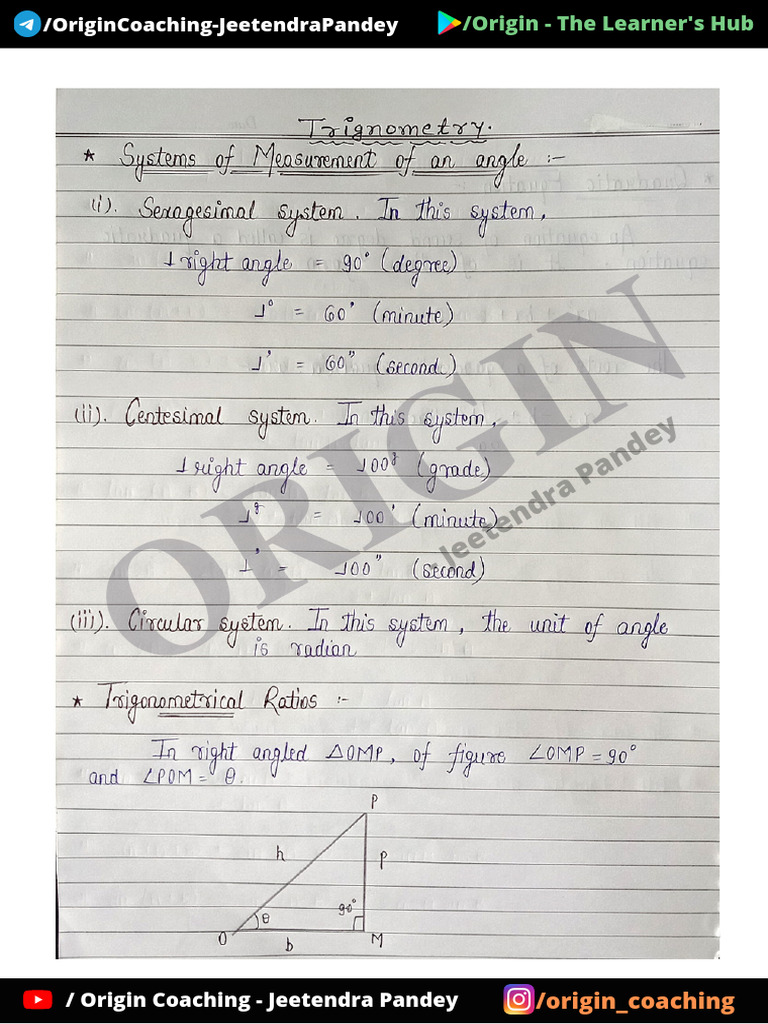 /OriginCoaching-JeetendraPandey
/Origin - The Learner's Hub
Trignometry.
* Systems of Measurement of an angle :-
(i). Sexagesimal system. In this system,
1 right angle = 90° (degree)
1° = 60' (minute)
1' = 60" (second)
(ii). Centesimal system. In this system,
1 right angle = 100g (grade)
1g = 100' (minute)
1' = 100" (second)
(iii). Circular system. In this system, the unit of angle
is radian
* Trigonometrical Ratios :-
In right angled ΔOMP, of figure ∠OMP = 90°
and ∠POM = θ.
P
h
P
θ
90°
O
b
M
ORIGIN
Jeetendra Pandey
/ Origin Coaching - Jeetendra Pandey
/origin_coaching